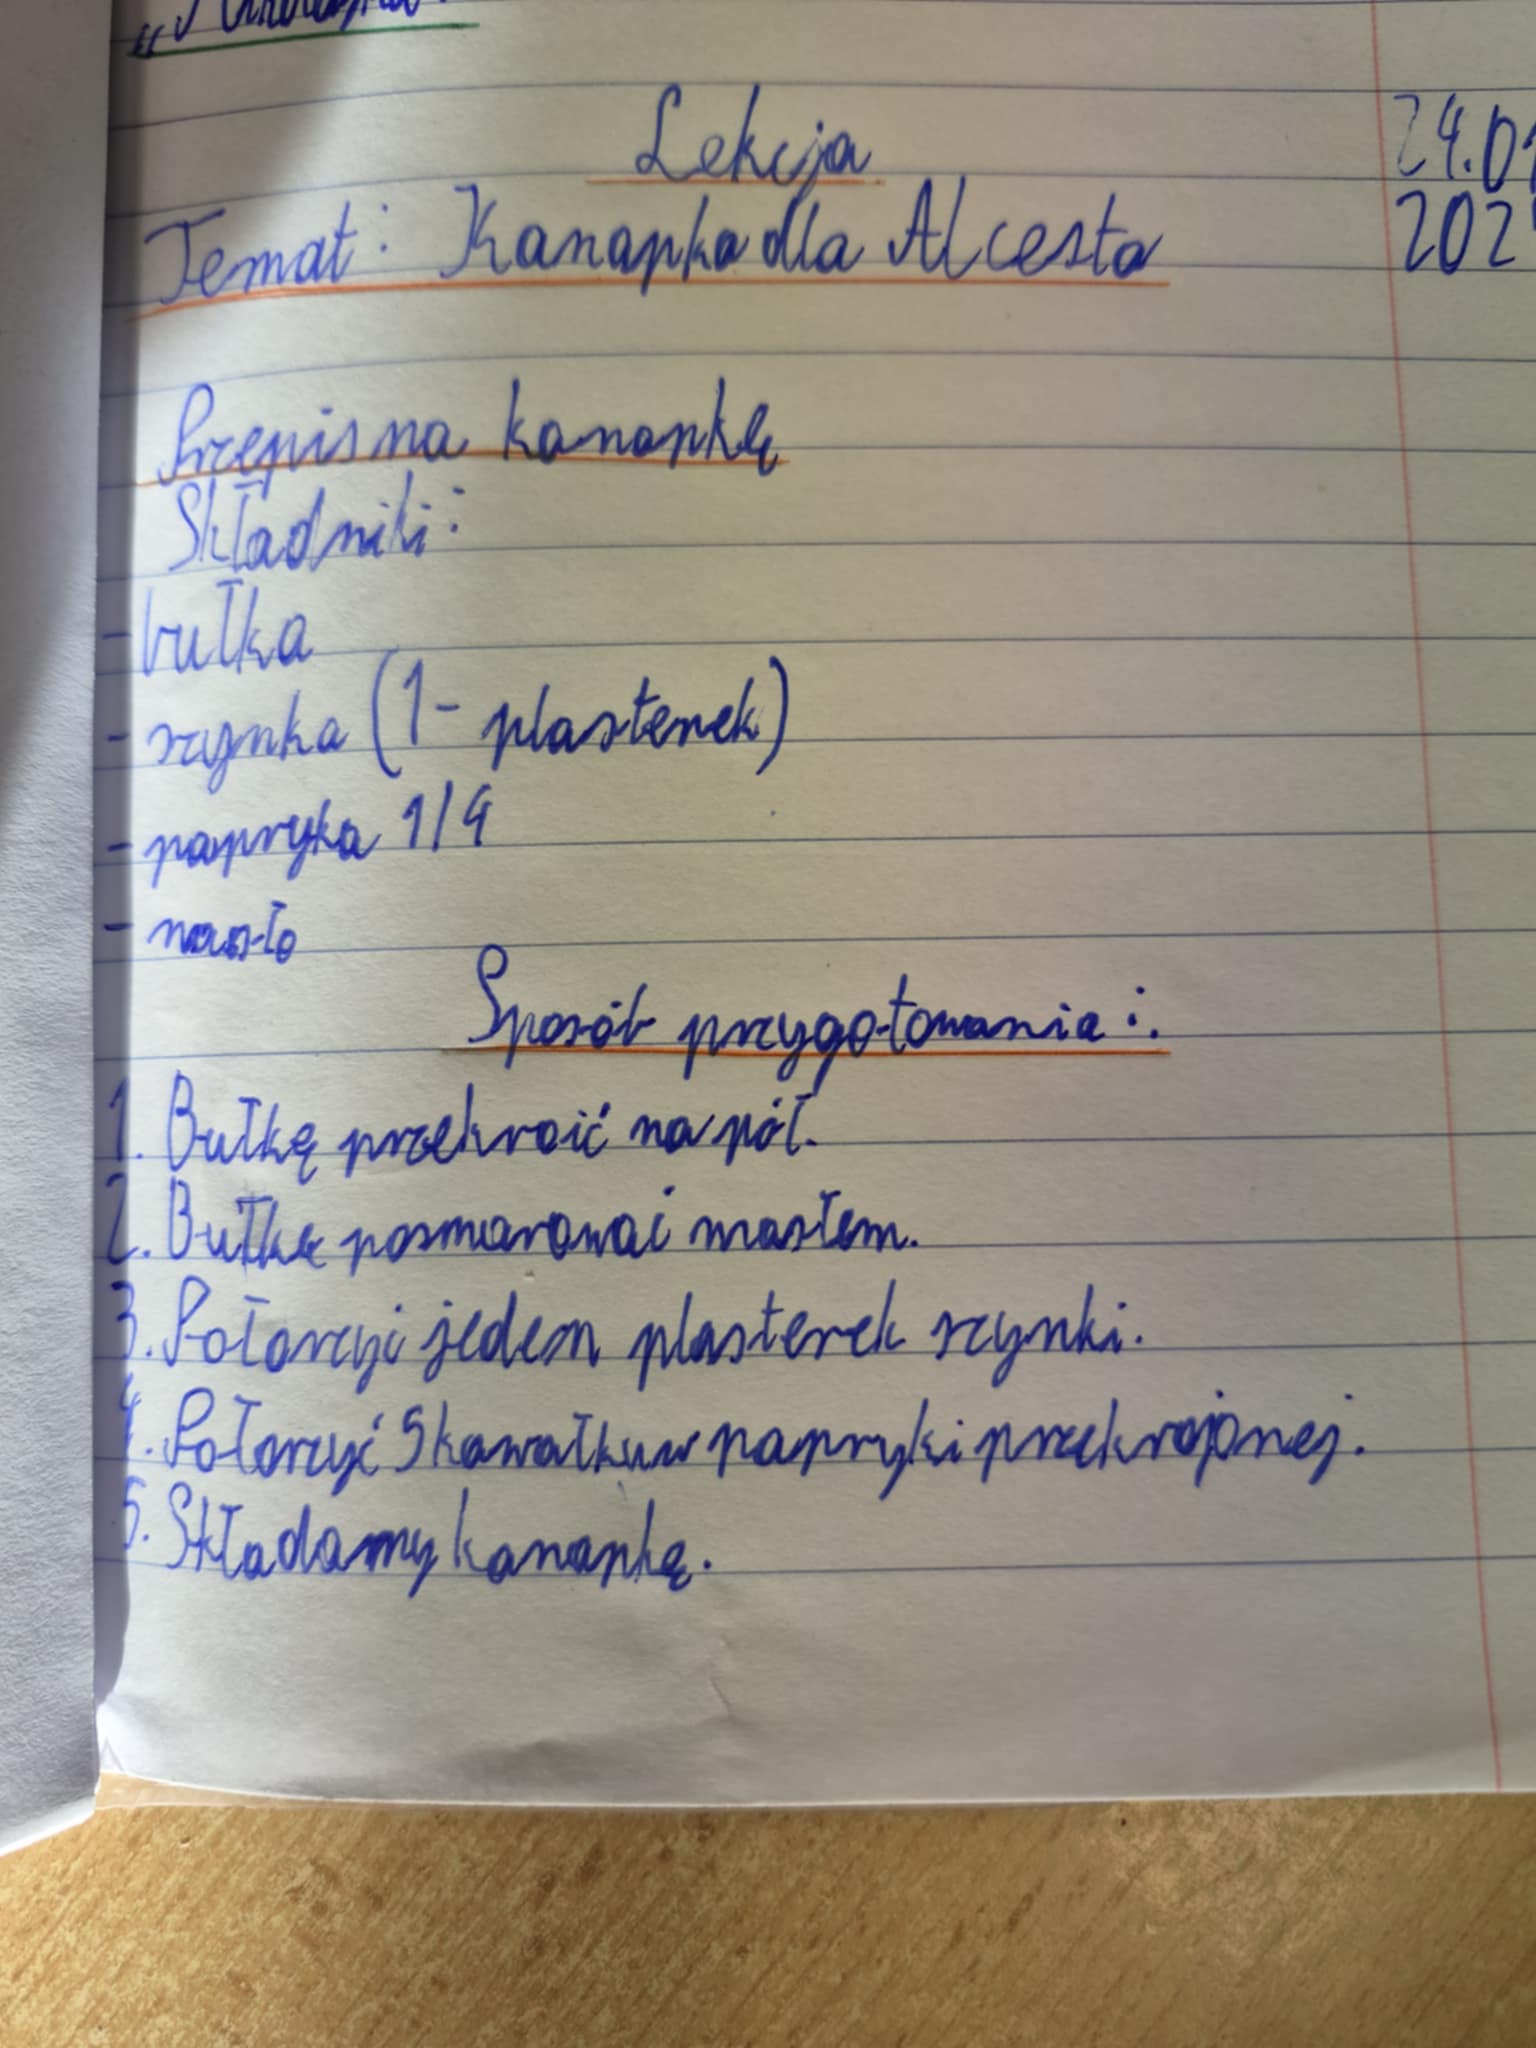 Lekcja
24.01
Temat: Kanapka dla Alcesta
202
Przepis na kanapkę
Składniki:
- bułka
- szynka (1- plasterek)
- papryka 1/4
- masło
Sposób przygotowania:.
1. Bułkę przekroić na pół.
2. Bułkę posmarować masłem.
3. Położyć jeden plasterek szynki.
4. Położyć 5 kawałkuw papryki przekrojonej.
5. Składamy kanapkę.